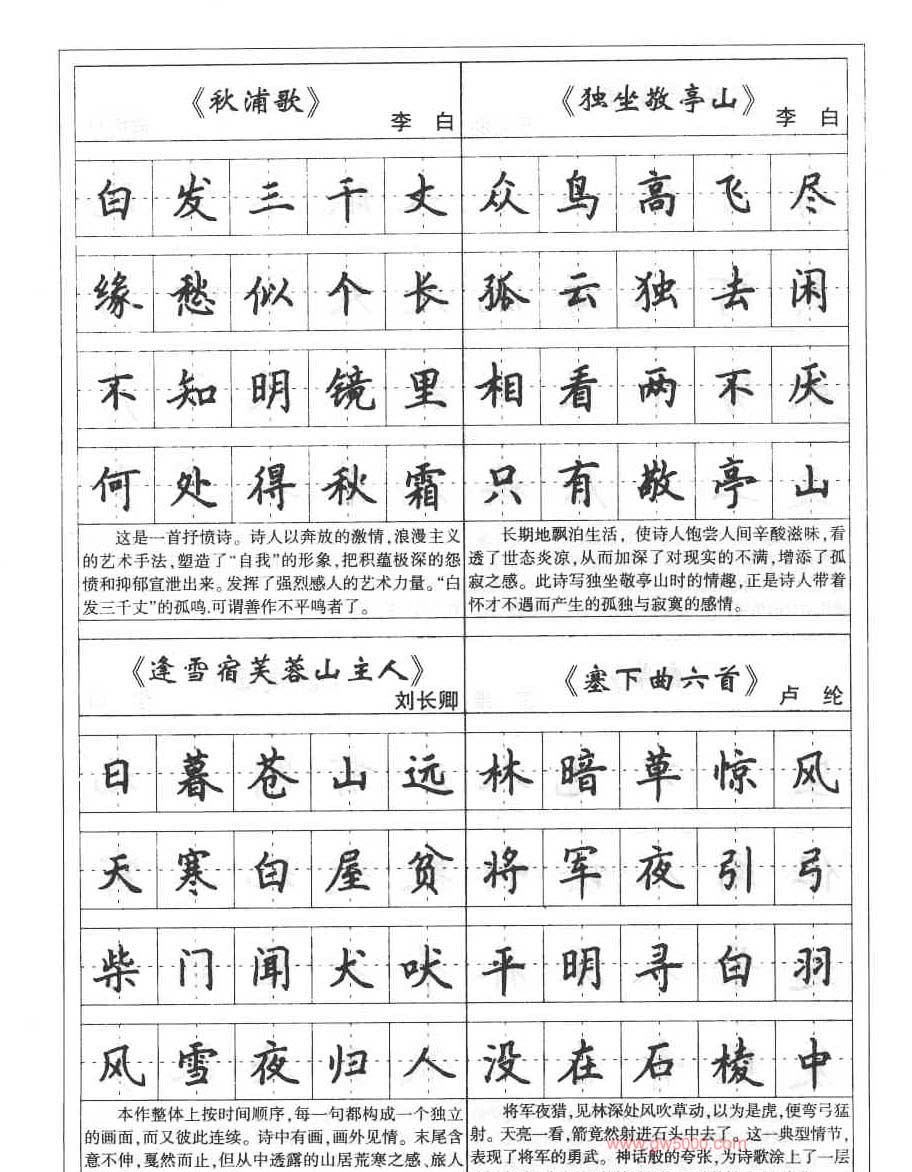 《秋浦歌》
李 白
白发三千丈
缘愁似个长
不知明镜里
何处得秋霜
这是一首抒愤诗。诗人以奔放的激情,浪漫主义
的艺术手法,塑造了“自我”的形象,把积蕴极深的怨
愤和抑郁宣泄出来。发挥了强烈感人的艺术力量。“白
发三千丈”的孤鸣,可谓善作不平鸣者了。
《独坐敬亭山》
李 白
众鸟高飞尽
孤云独去闲
相看两不厌
只有敬亭山
长期地飘泊生活，使诗人饱尝人间辛酸滋味,看
透了世态炎凉,从而加深了对现实的不满,增添了孤
寂之感。此诗写独坐敬亭山时的情趣,正是诗人带着
怀才不遇而产生的孤独与寂寞的感情。
《逢雪宿芙蓉山主人》
刘长卿
日暮苍山远
天寒白屋贫
柴门闻犬吠
风雪夜归人
本作整体上按时间顺序,每一句都构成一个独立
的画面,而又彼此连续。诗中有画,画外见情。末尾含
意不伸,戛然而止,但从中透露的山居荒寒之感、旅人
《塞下曲六首》
卢 纶
林暗草惊风
将军夜引弓
平明寻白羽
没在石棱中
将军夜猎,见林深处风吹草动,以为是虎,便弯弓猛
射。天亮一看,箭竟然射进石头中去了。这一典型情节,
表现了将军的勇武。神话般的夸张,为诗歌涂上了一层
www.gw5000.com